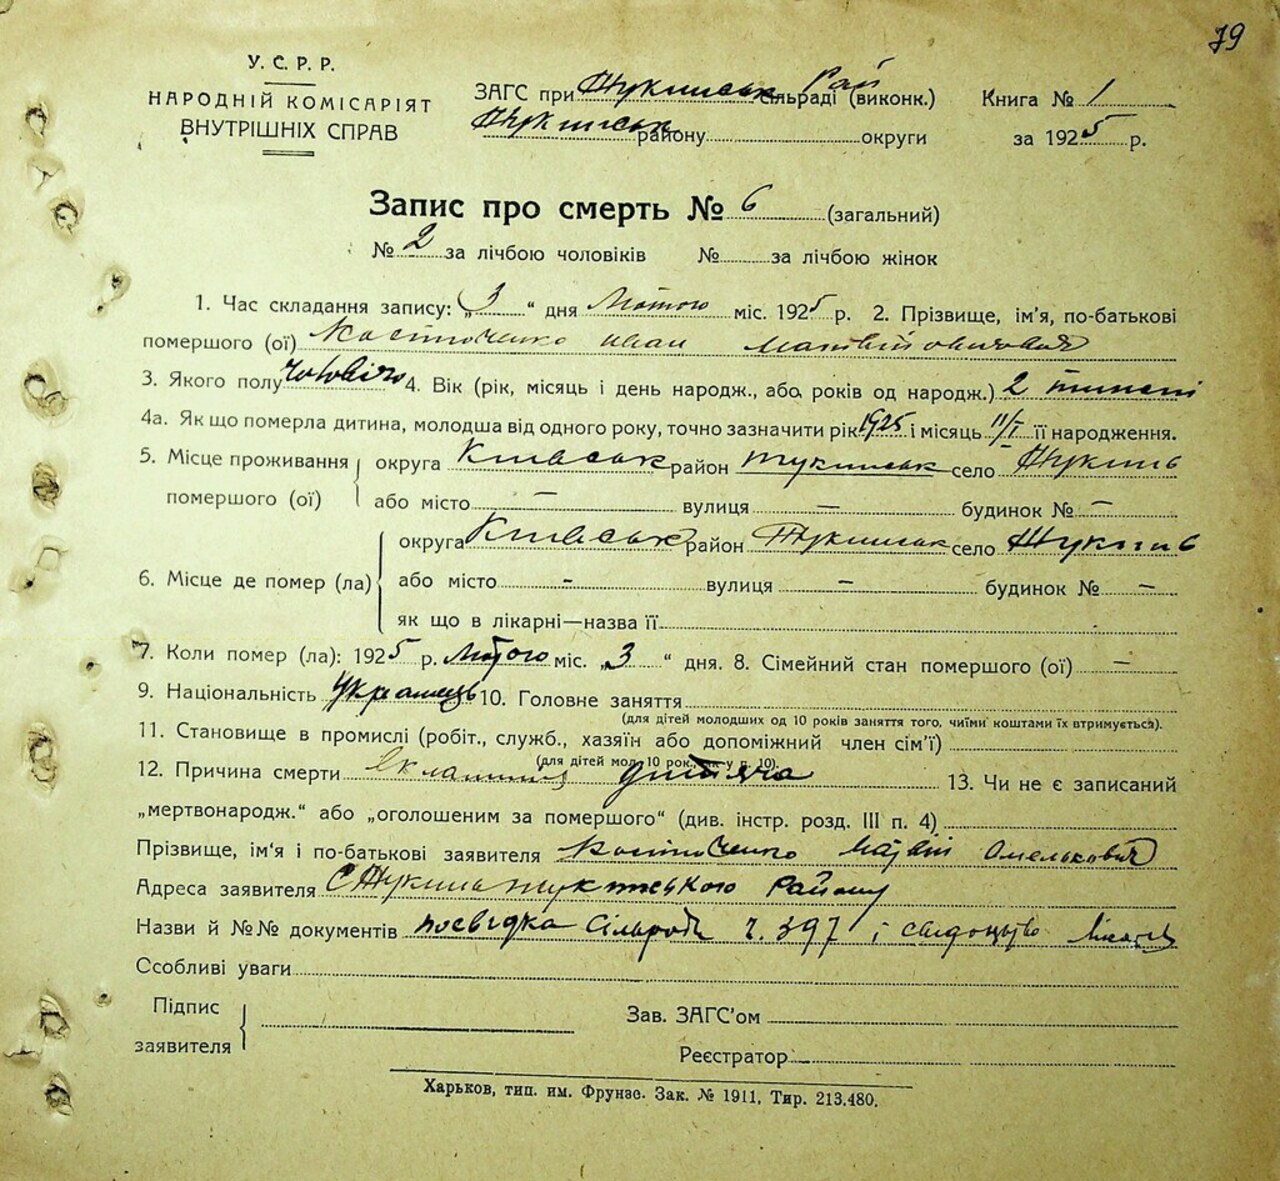 79
У.С.Р.Р.
НАРОДНІЙ КОМІСАРІЯТ
ВНУТРІШНІХ СПРАВ
ЗАГС при Жукинськ Рай сільраді (виконк.)
Жукинськ району округи
Книга № 1
за 1925 р.
Запис про смерть № 6 (загальний)
№ 2 за лічбою чоловіків № за лічбою жінок
1. Час складання запису: „3“ дня Лютого міс. 1925 р. 2. Прізвище, ім'я, по-батькові
помершого (ої) Костюченко иван
3. Якого полу 4. Вік (рік, місяць і день народж., або, років од народж.) 2 тижні
4а. Як що померла дитина, молодша від одного року, точно зазначити рік 1925 і місяць 11/I її народження.
5. Місце проживання помершого (ої) округа Київськ район Жукинськ село Жукинь
або місто — вулиця — будинок № —
6. Місце де помер (ла) округа Київськ район Жукинськ село Жукинь
або місто - вулиця — будинок № —
як що в лікарні—назва її
7. Коли помер (ла): 1925 р. Лютого міс. „3“ дня. 8. Сімейний стан помершого (ої) —
9. Національність Українець 10. Головне заняття
(для дітей молодших од 10 років заняття того, чиїми коштами їх втримується).
11. Становище в промислі (робіт., служб., хазяїн або допоміжний член сім'ї)
(для дітей мол. 10 рок., як у п. 10).
12. Причина смерти дитяча 13. Чи не є записаний
„мертвонародж.“ або „оголошеним за помершого“ (див. інстр. розд. III п. 4)
Прізвище, ім'я і по-батькові заявителя Костюченко Матвій Омелькович
Адреса заявителя С Жукинь жукинського Району
Назви й №№ документів посвідка Сільради ч. 397 і свідоцтво
Особливі уваги
Підпис заявителя
Зав. ЗАГС'ом
Реєстратор
Харьков, тип. им. Фрунзе. Зак. № 1911, Тир. 213.480.